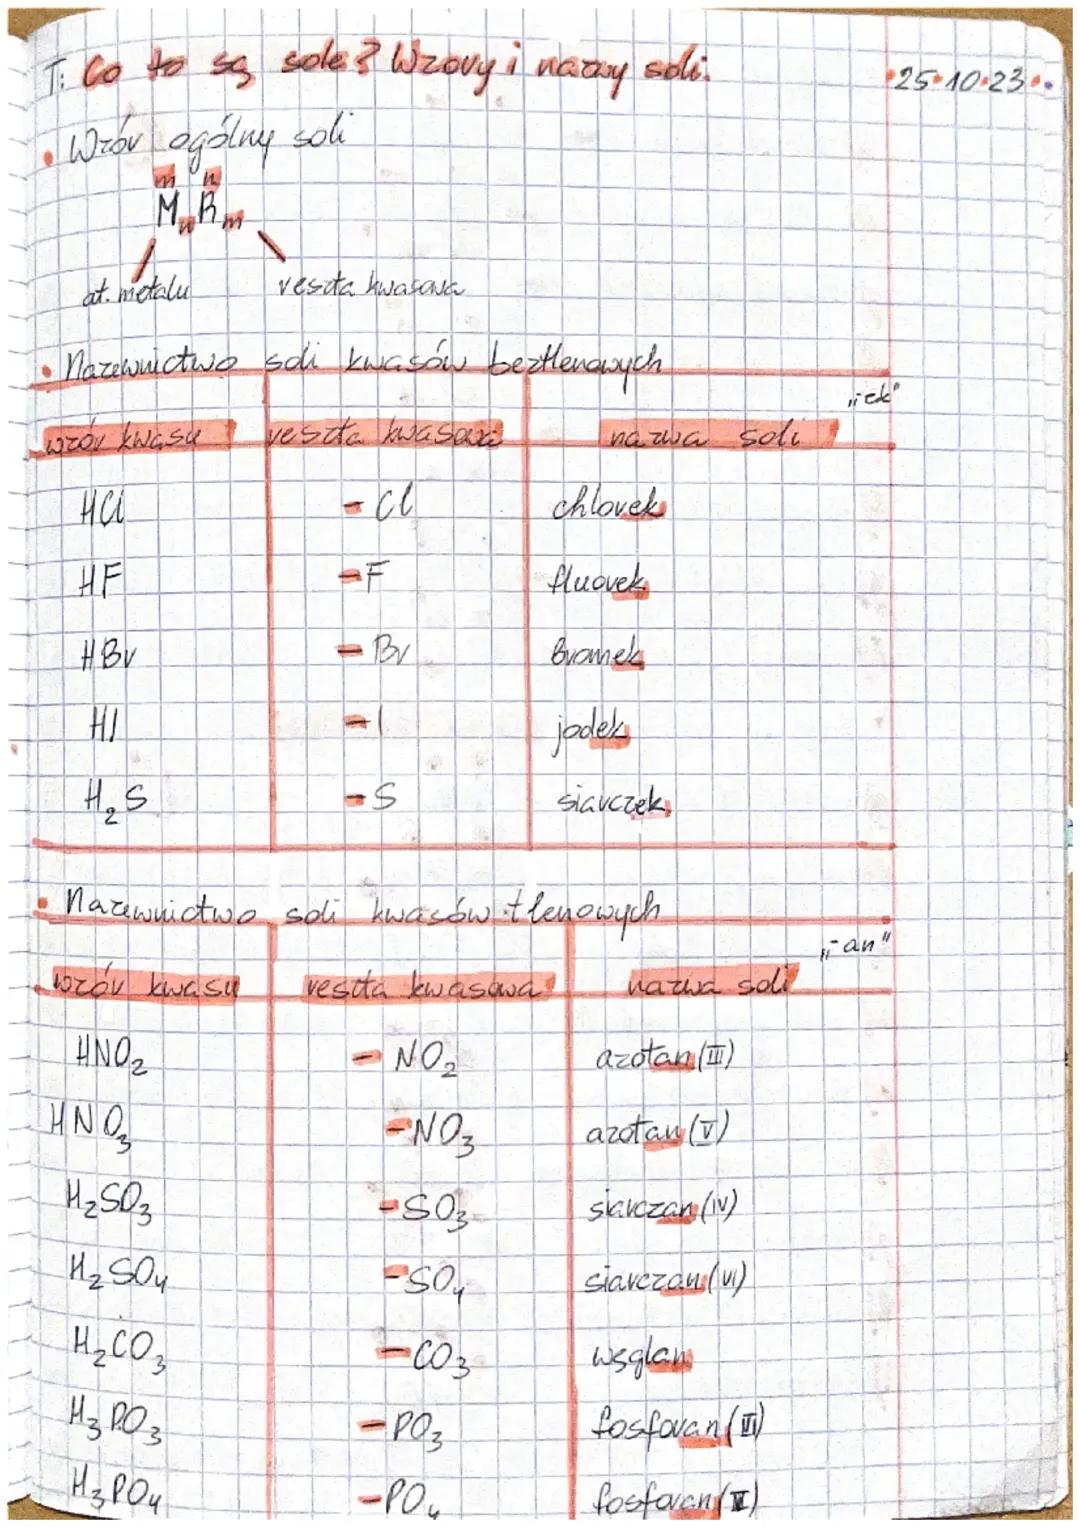 T: Co to są sole? Wzory i nazwy soli.
25.10.23
• Wzór ogólny soli
m n
MnRm
at. metalu reszta kwasowa
• Nazewnictwo soli kwasów beztlenowych
"-ek"
wzór kwasu reszta kwasowa nazwa soli
HCl - Cl chlorek
HF - F fluorek
HBr - Br bromek
HI - I jodek
H₂S - S siarczek
• Nazewnictwo soli kwasów tlenowych
"-an"
wzór kwasu reszta kwasowa nazwa soli
HNO₂ - NO₂ azotan (III)
HNO₃ - NO₃ azotan (V)
H₂SO₃ - SO₃ siarczan (IV)
H₂SO₄ - SO₄ siarczan (VI)
H₂CO₃ - CO₃ węglan
H₃PO₃ - PO₃ fosforan (III)
H₃PO₄ - PO₄ fosforan (V)